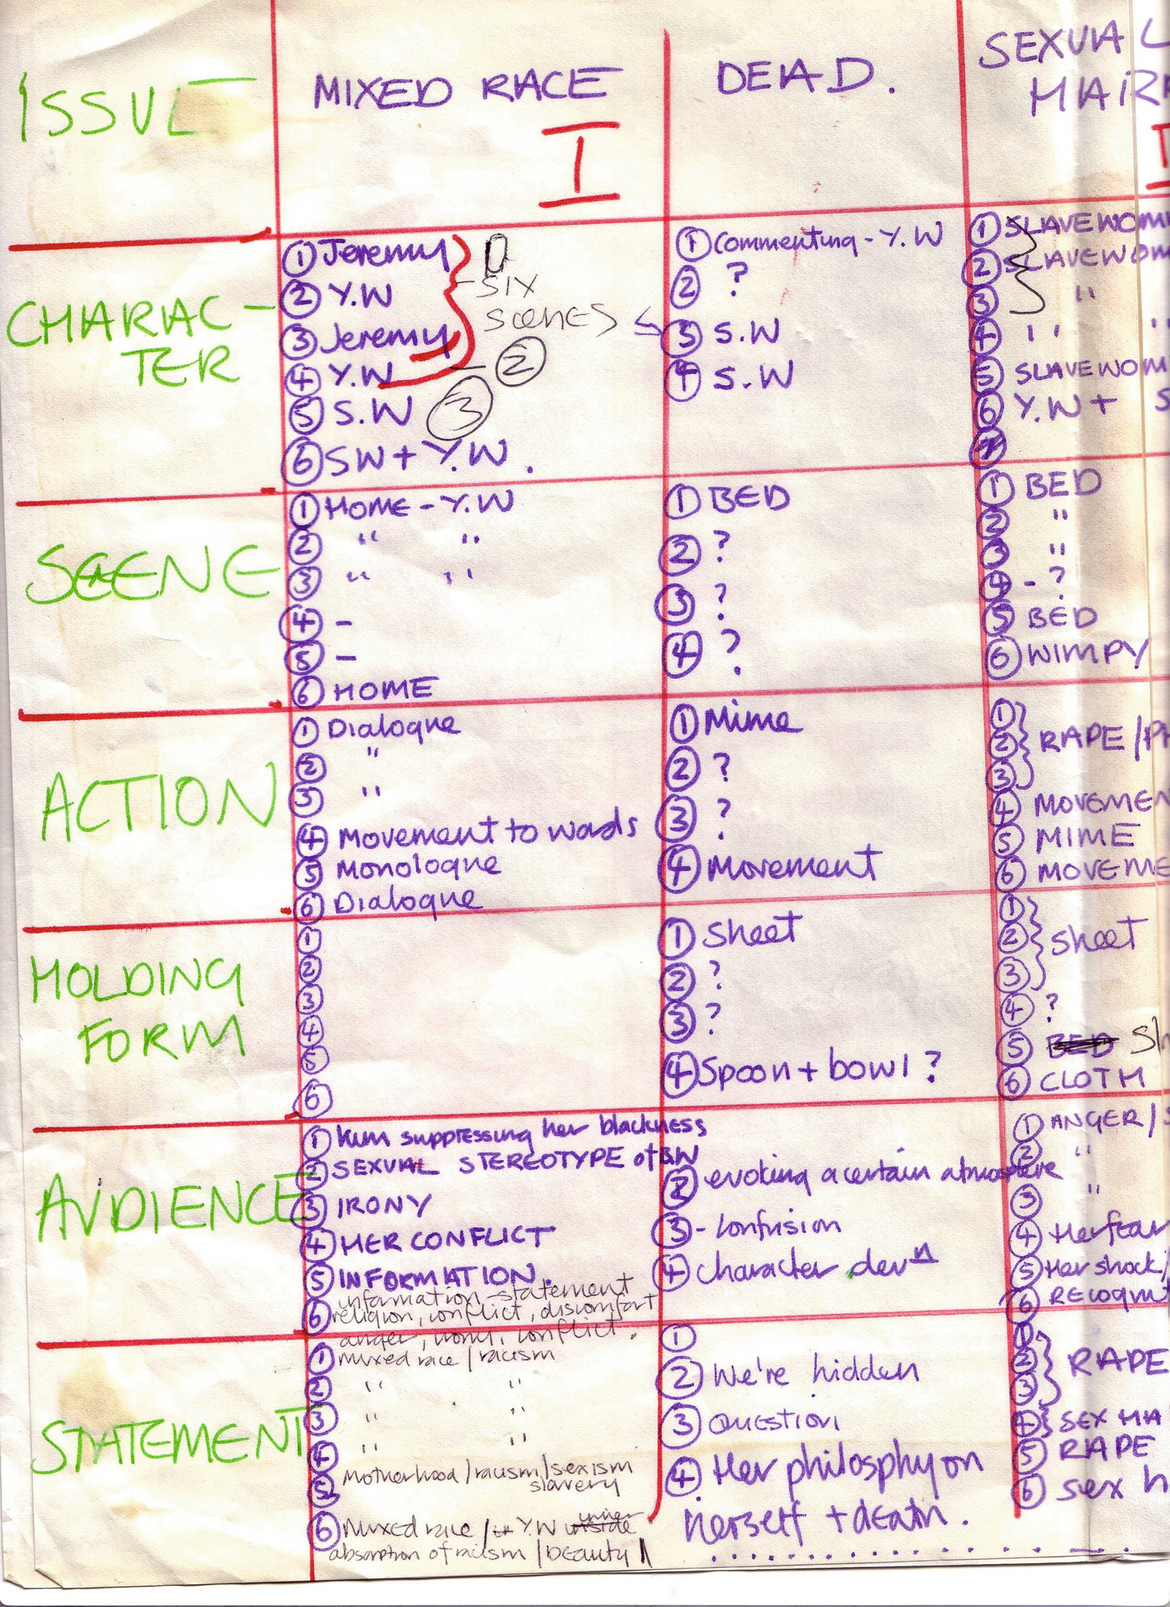 ISSUE
MIXED RACE
I
DEAD.
SEXUAL
HAIR
CHARAC-
TER
① Jeremy
② Y.W
③ Jeremy
④ Y.W
⑤ S.W
⑥ SW + Y.W.
SIX
scenes
②
③
① Commenting - Y.W
② ?
③ S.W
④ S.W
① SLAVEWOM
② SLAVEWOM
③ "
④ " "
⑤ SLAVEWOM
⑥ Y.W + S
⑦
SCENE
① HOME - Y.W
② " "
③ " "
④ -
⑤ -
⑥ HOME
① BED
② ?
③ ?
④ ?
① BED
② "
③ "
④ - ?
⑤ BED
⑥ WIMPY
ACTION
① Dialogue
② "
③ "
④ Movement to words
⑤ Monologue
⑥ Dialogue
① Mime
② ?
③ ?
④ Movement
①
② RAPE / PH
③
④ MOVEMEN
⑤ MIME
⑥ MOVEME
HOLDING
FORM
①
②
③
④
⑤
⑥
① Sheet
② ?
③ ?
④ Spoon + bowl ?
①
② sheet
③
④ ?
⑤ BED Sh
⑥ CLOTH
AUDIENCE
① Kum suppressing her blackness
② SEXUAL STEREOTYPE of BW
③ IRONY
④ HER CONFLICT
⑤ INFORMATION.
information - statement
⑥ religion, conflict, discomfort
anger, irony, conflict.
② evoking a certain atmosphere
③ - confusion
④ character devⁿ
① ANGER /
② "
③ "
④ Her fear
⑤ Her shock /
⑥ RECOGNIT
STATEMENT
① Mixed race / racism
② " "
③ " "
④ " "
⑤ Motherhood / racism / sexism
slavery
⑥ Mixed race / Y.W inside inner
absorption of racism / beauty
①
② We're hidden
③ question
④ Her philosphy on
herself + death.
①
② RAPE
③
④ SEX HA
⑤ RAPE
⑥ sex h